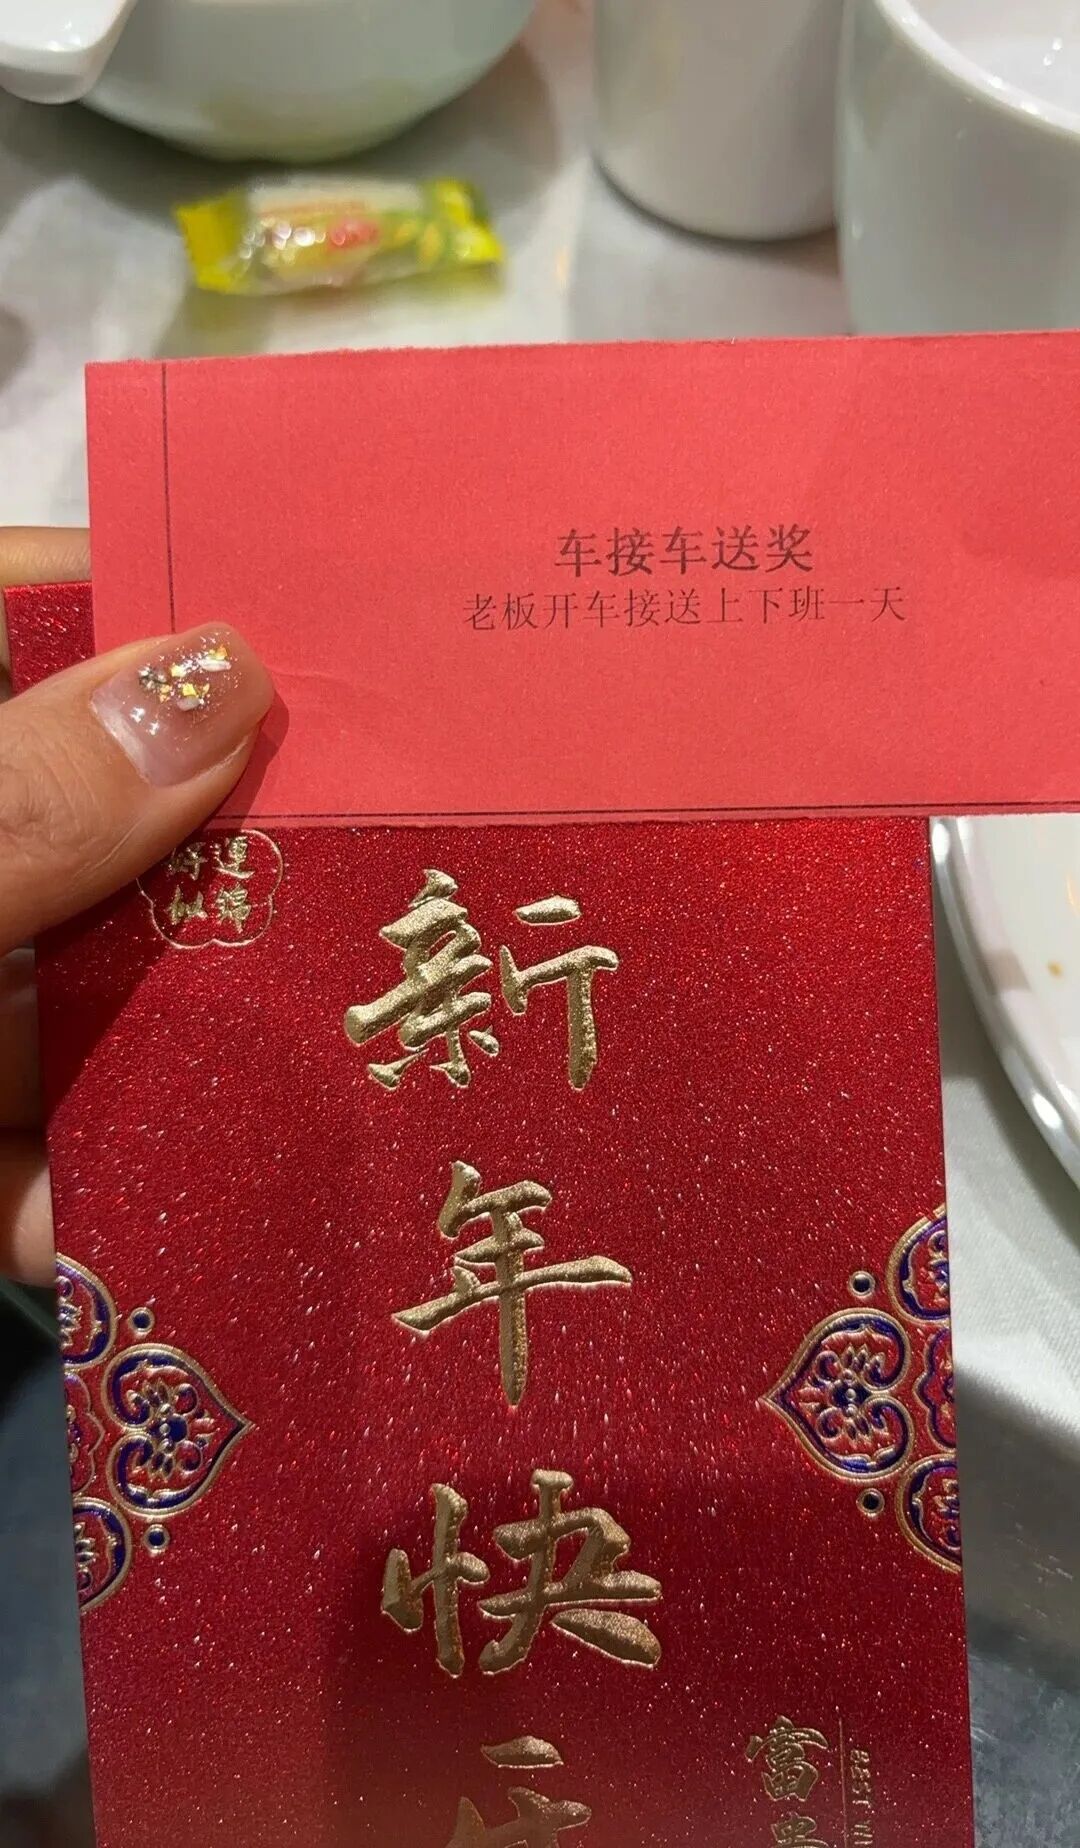 车接车送奖
老板开车接送上下班一天
好運
似錦
新
年
快
富
BEST